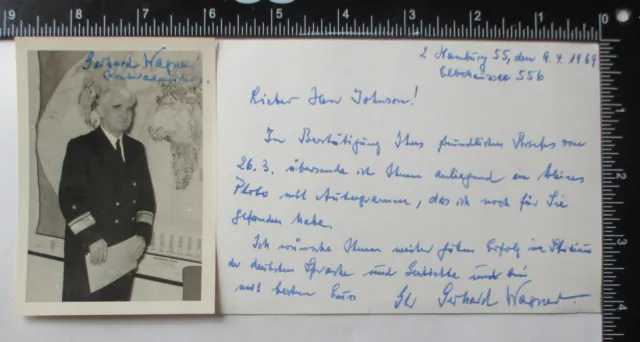 Gerhard Wagner
Konteradmiral
2 Hamburg 55, den 9.4.1969
Elbchaussee 556
Lieber Herr Johnson!
In Bestätigung Ihres freundlichen Briefes vom
26.3. übersende ich Ihnen anliegend ein kleines
Photo mit Autogramm, das ich noch für Sie
gefunden habe.
Ich wünsche Ihnen weiter guten Erfolg im Studium
der deutschen Sprache und Geschichte und bin
mit bestem Gruss Ihr Gerhard Wagner.
8 7 6 5 4 3 2 1 0
1
2
3
4